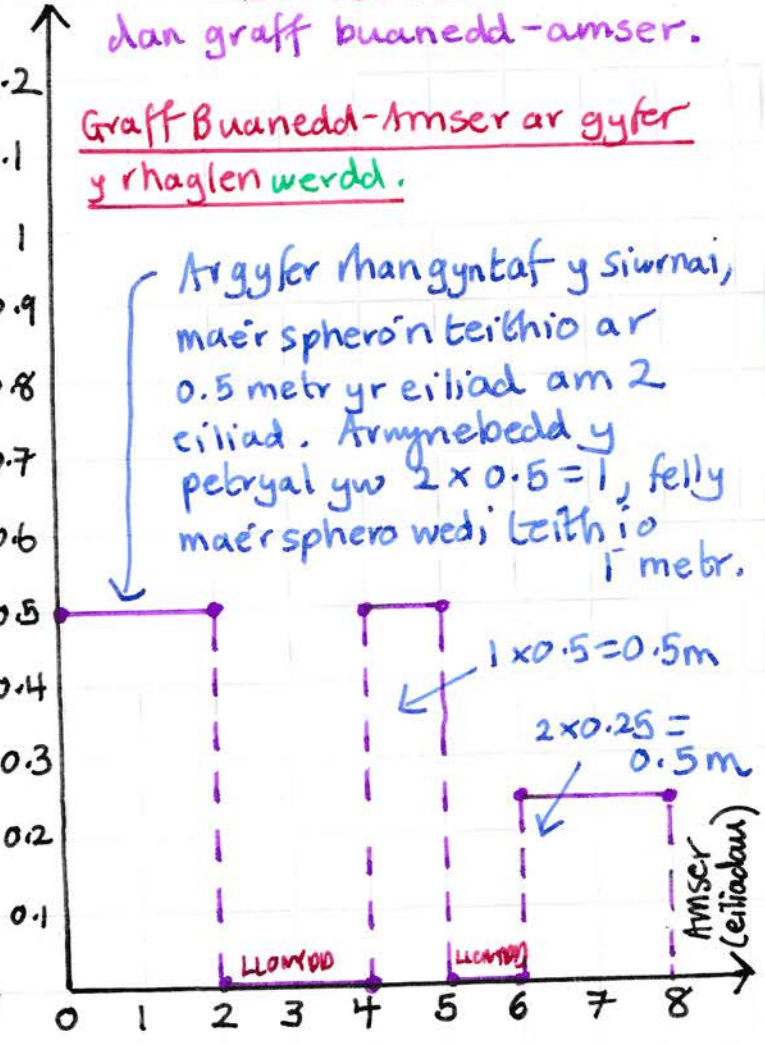 dan graff buanedd-amser.
Graff Buanedd-Amser ar gyfer
y rhaglen werdd.
Ar gyfer rhan gyntaf y siwrnai,
mae'r sphero'n teithio ar
0.5 metr yr eiliad am 2
eiliad. Arwynebedd y
petryal yw 2 × 0.5 = 1, felly
mae'r sphero wedi teithio
1 metr.
1 × 0.5 = 0.5m
2 × 0.25 =
0.5m
.2
.1
1
0.9
.8
0.7
0.6
0.5
0.4
0.3
0.2
0.1
LLONYDD
LLONYDD
Amser
(eiliadau)
0 1 2 3 4 5 6 7 8